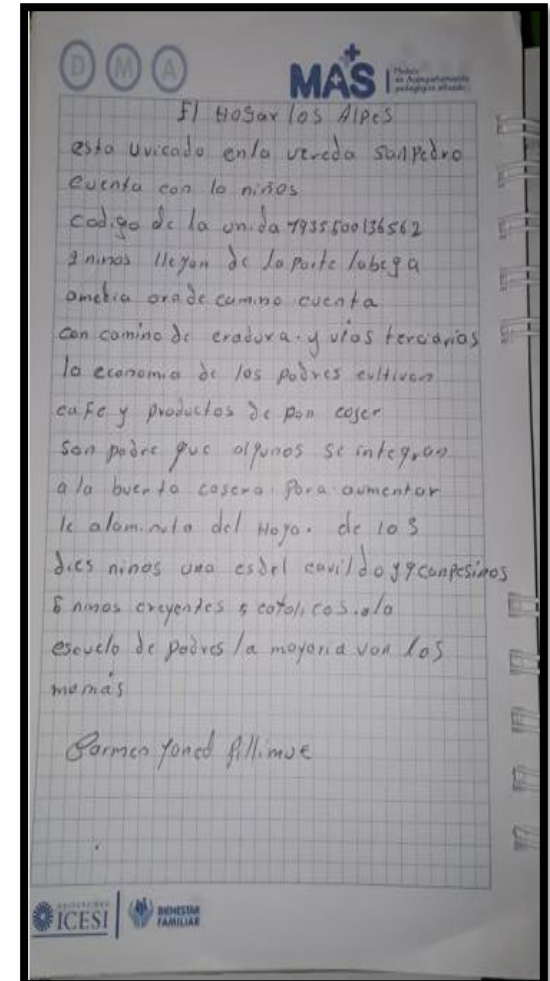 D M A
MAS Modelo de Acompañamiento pedagógico situado
El Hogar los Alpes
esta uvicado enla vereda San Pedro
cuenta con 10 niños
codigo de la unida 1935500136562
9 niños llegan de la parte
amedia ora de camino cuenta
con camino de eradura. y vias terciarias
la economia de los padres cultivan
cafe y productos de pan coser
son padre que algunos se integran
a la buerta casera. Para aumentar
le del de los
dies ninos uno esdel cavildo y 9 canpesinos
5 ninos creyentes 5 catolicos. ala
escuela de padres la mayoria van las
mamás
Carmen
UNIVERSIDAD ICESI
BIENESTAR FAMILIAR